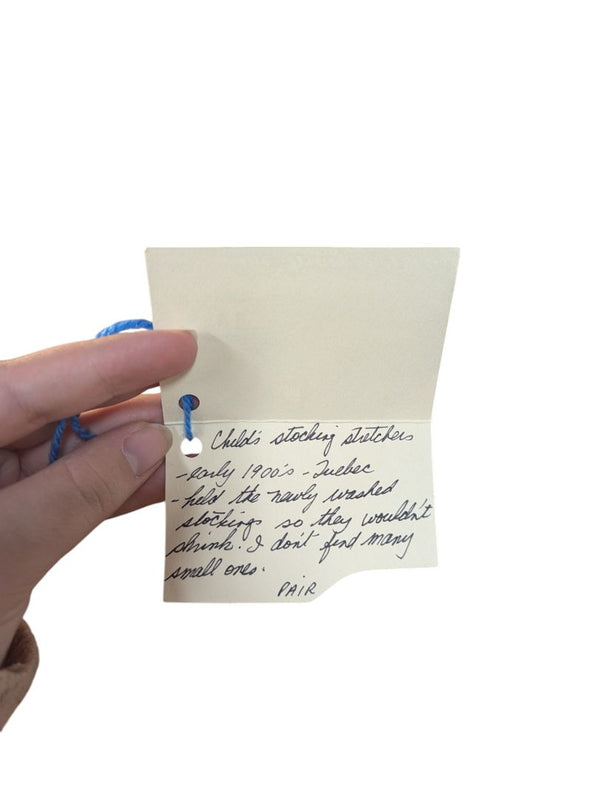 Child's stocking stretchers
- early 1900's - Quebec
- held the newly washed
stockings so they wouldn't
shrink. I don't find many
small ones.
PAIR